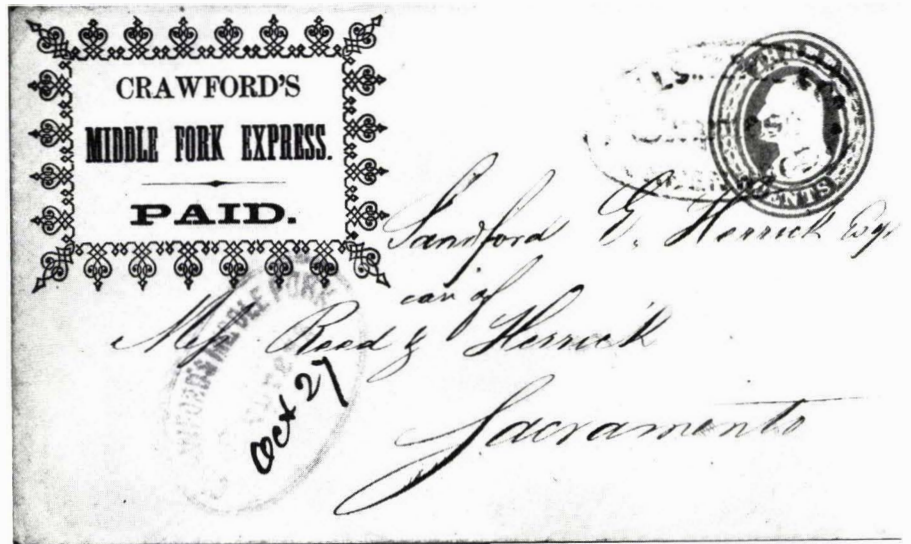 CRAWFORD'S
MIDDLE FORK EXPRESS.
PAID.
THREE
CENTS
Sandford G. Herrick Esq.
care of
Mess Reed & Herrick
Sacramento
CRAWFORD'S MIDDLE FORK
Oct 27